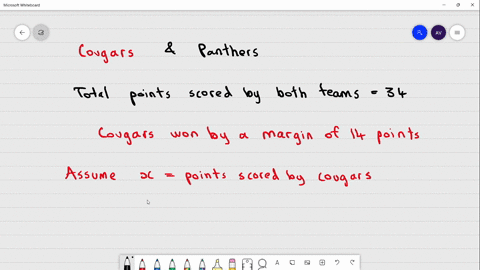 Microsoft Whiteboard
AV
Cougars & Panthers
Total points scored by both teams = 34
Cougars won by a margin of 14 points
Assume x = points scored by cougars